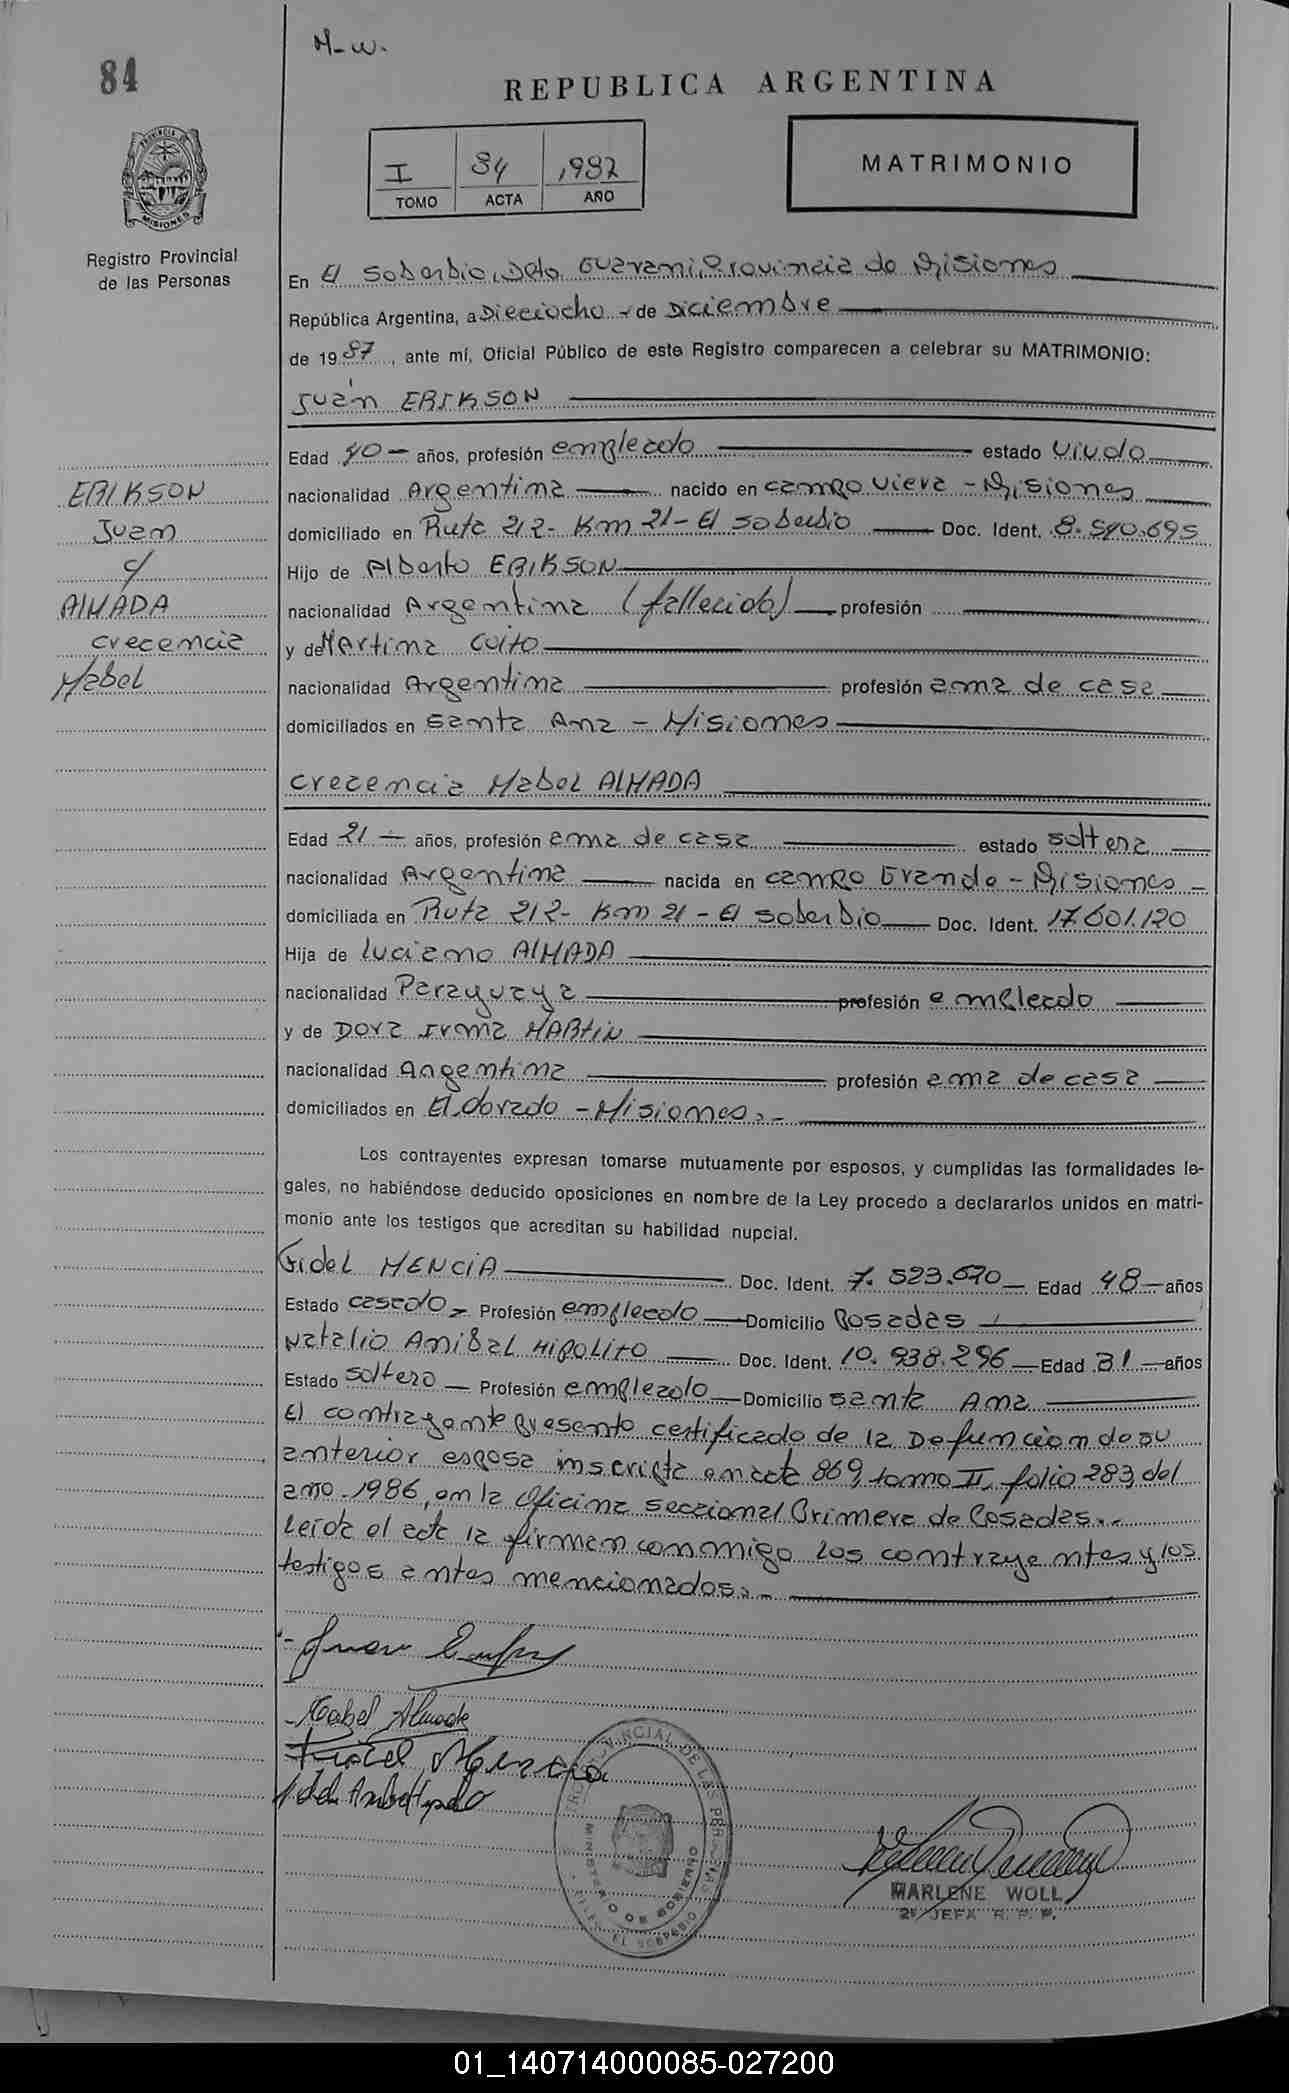 M-W.
84
REPUBLICA ARGENTINA
I 84 1987
TOMO ACTA AÑO
MATRIMONIO
PROVINCIA DE
MISIONES
Registro Provincial
de las Personas
En El Soberbio, Dpto. Guarani, Provincia de Misiones
República Argentina, a Dieciocho - de Diciembre
de 1987, ante mí, Oficial Público de este Registro comparecen a celebrar su MATRIMONIO:
Juan ERIKSON
Edad 40 - años, profesión empleado estado viudo
nacionalidad Argentina nacido en campo viera - Misiones
domiciliado en Ruta 212 - Km 21 - El Soberbio Doc. Ident. 8.540.695
Hijo de Alberto ERIKSON
nacionalidad Argentina (fallecido) profesión
y de Martina Cuito
nacionalidad Argentina profesión ama de casa
domiciliados en Santa Ana - Misiones
ERIKSON
Juan
c/
AlMADA
crecencia
Mabel
crecencia Mabel AlMADA
Edad 21 - años, profesión ama de casa estado soltera
nacionalidad Argentina nacida en campo Grande - Misiones -
domiciliada en Ruta 212 - Km 21 - El Soberbio Doc. Ident. 17.601.120
Hija de Luciano AlMADA
nacionalidad Paraguaya profesión empleado
y de Dora Irma MARtiN
nacionalidad Argentina profesión ama de casa
domiciliados en El dorado - Misiones.-
Los contrayentes expresan tomarse mutuamente por esposos, y cumplidas las formalidades le-
gales, no habiéndose deducido oposiciones en nombre de la Ley procedo a declararlos unidos en matri-
monio ante los testigos que acreditan su habilidad nupcial.
Fidel MENCiA Doc. Ident. 7.523.670 - Edad 48 - años
Estado casado - Profesión empleado Domicilio Posadas
Natalio Anibal HipOLITO Doc. Ident. 10.938.296 - Edad 31 - años
Estado soltero - Profesión empleado Domicilio Santa Ana
El contrayente presento certificado de la Defuncion de su
anterior esposa inscripta en acta 869, tomo II, folio 283, del
año 1986, en la Oficina seccional Primera de Posadas.-
Leida el acta la firman conmigo los contrayentes y los
testigos antes mencionados.-
Mabel Almada
Fidel Mencia
PROVINCIAL DE LAS PERSONAS
MINISTERIO DE GOBIERNO
EL SOBERBIO
MARLENE WOLL
2º JEFA R. P. P.
01_140714000085-027200